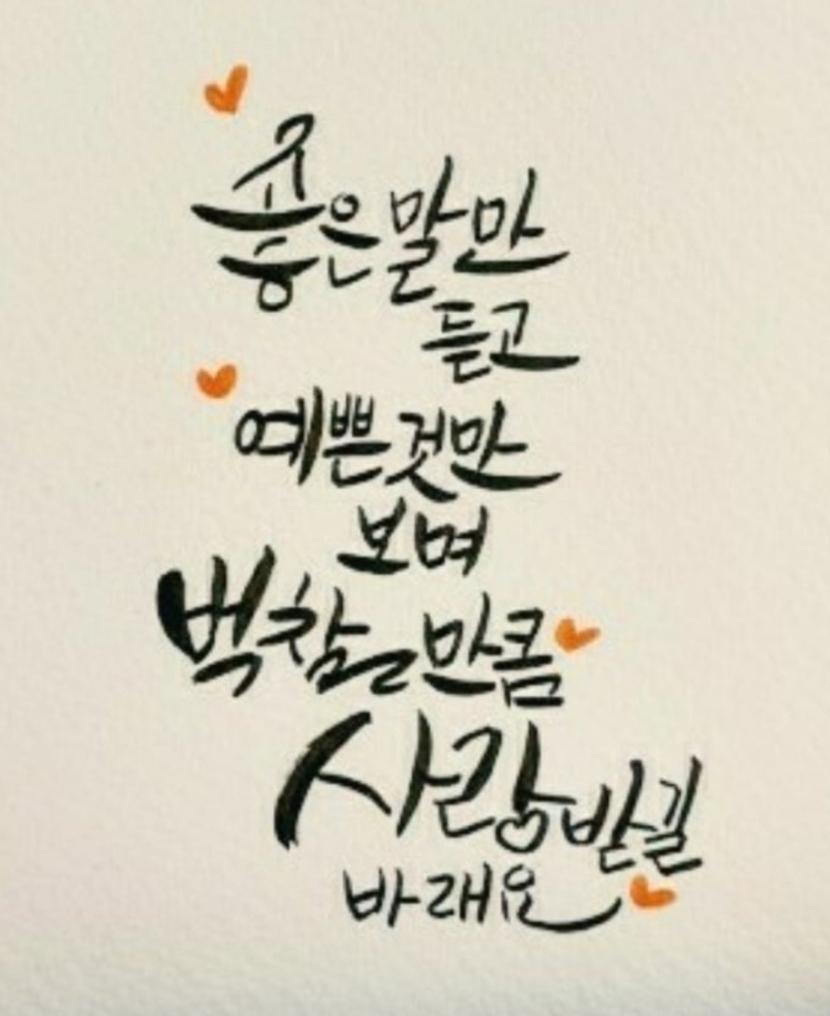 좋은말만
듣고
예쁜것만
보며
벅찰만큼
사랑받길
바래요